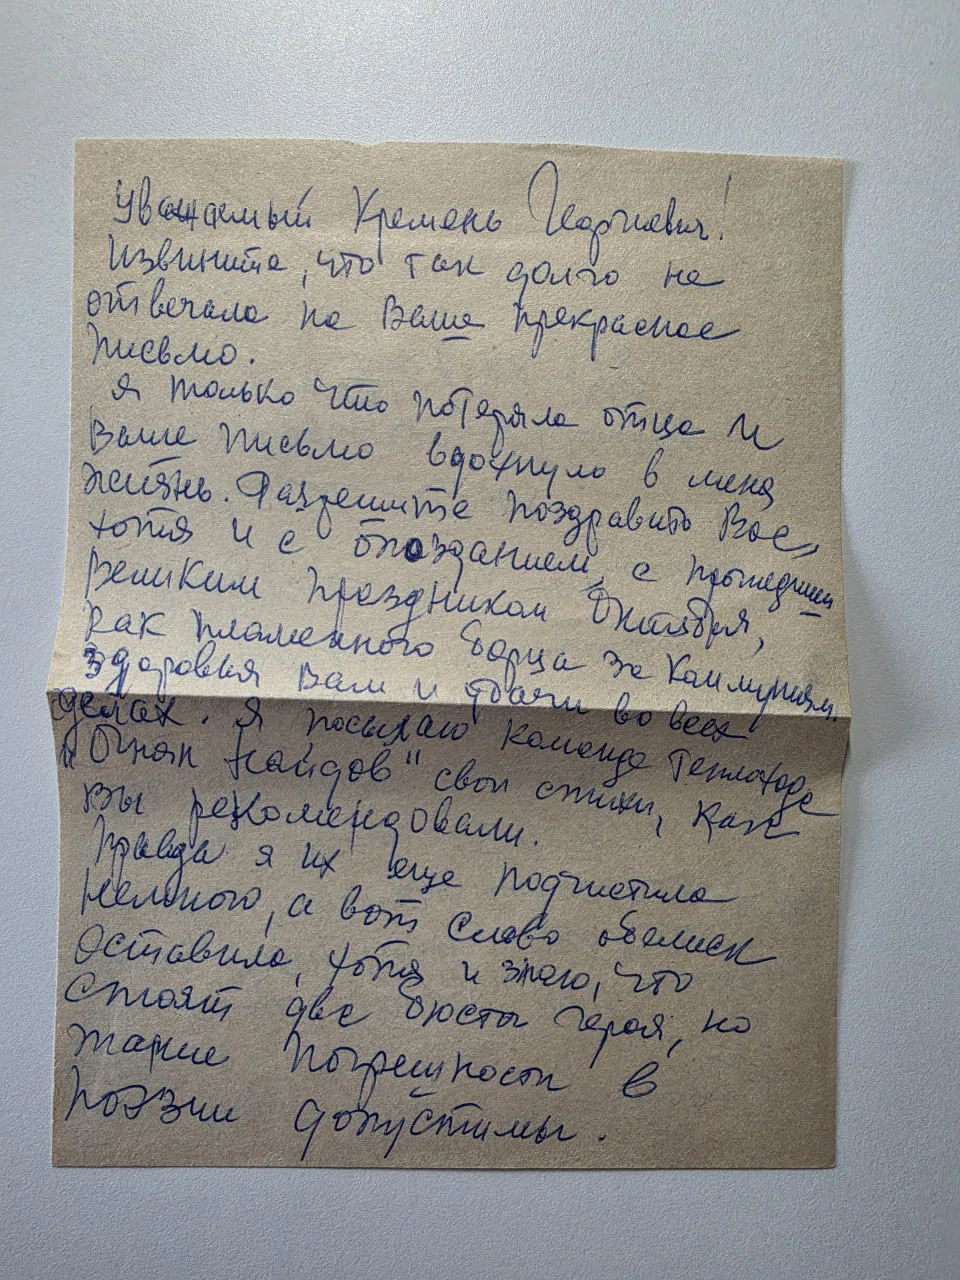 Уважаемый Кремень Георгиевич!
Извините, что так долго не
отвечала на Ваше прекрасное
письмо.
Я только что потеряла отца и
Ваше письмо вдохнуло в меня
жизнь. Разрешите поздравить Вас,
хотя и с опозданием, с прошедшим
Великим праздником Октября,
как пламенного борца за коммунизм.
Здоровья Вам и удачи во всех
делах. Я посылаю команде теплохода
"Огнян Найдов" свои стихи, как
Вы рекомендовали.
Правда я их еще подчистила
немного, а вот слово обелиск
оставила, хотя и знаю, что
стоят две бюсты героя, но
такие погрешности в
поэзии допустимы.